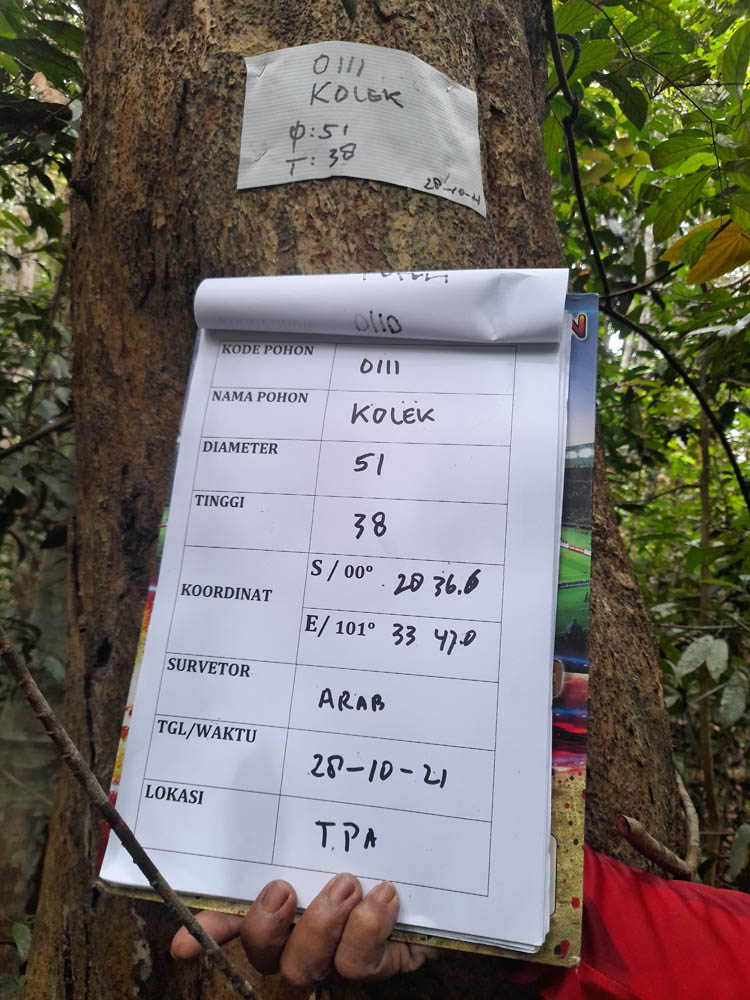 0111
KOLEK
φ: 51
T: 38
28-10-21
0110
KODE POHON 0111
NAMA POHON KOLEK
DIAMETER 51
TINGGI 38
KOORDINAT S / 00° 28 36.6
E/ 101° 33 47.0
SURVETOR ARAB
TGL/WAKTU 28-10-21
LOKASI T.PA